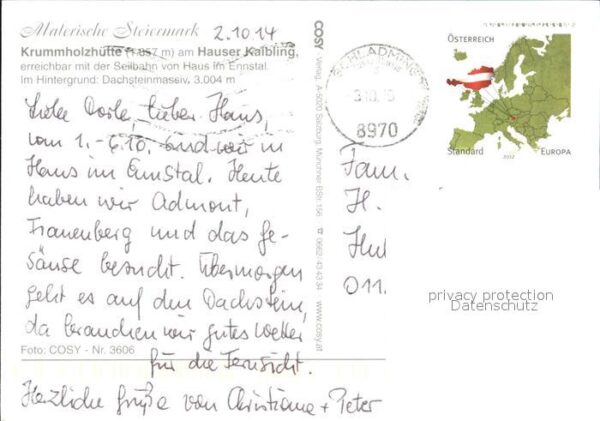 Malerische Steiermark
2.10.14
Krummholzhütte (1.857 m) am Hauser Kaibling,
erreichbar mit der Seilbahn von Haus im Ennstal.
Im Hintergrund: Dachsteinmassiv, 3.004 m
Liebe Dorle, lieber Hans,
vom 1.-6.10. sind wir in
Haus im Ennstal. Heute
haben wir Admont,
Frauenberg und das Ge-
säuse besucht. Übermorgen
geht es auf den Dachstein,
da brauchen wir gutes Wetter
für die Fernsicht.
Foto: COSY - Nr. 3606
Herzliche Grüße von Christiane + Peter
COSY Verlag, A-5020 Salzburg, Münchner BStr. 156 ☎ 0662-43 43 34 www.cosy.at
SCHLADMING
8970
ÖSTERREICH
Standard 2012 EUROPA
Fam.
H.
011.
privacy protection
Datenschutz